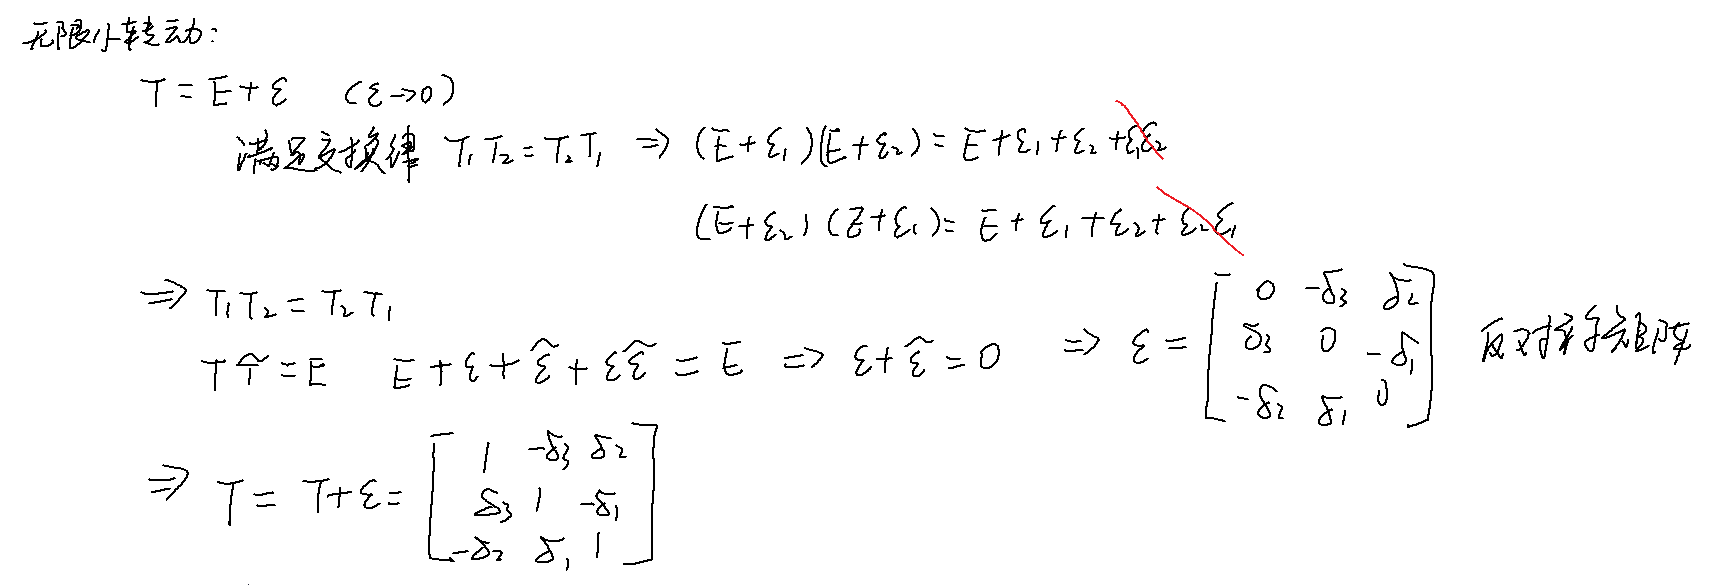 无限小转动:
T = E + ε (ε→0)
满足交换律 T₁T₂ = T₂T₁ ⇒ (E+ε₁)(E+ε₂) = E+ε₁+ε₂+ε₁ε₂
(E+ε₂)(E+ε₁) = E+ε₁+ε₂+ε₂ε₁
⇒ T₁T₂ = T₂T₁
TT̃ = E E+ε+ε̃+εε̃ = E ⇒ ε+ε̃ = 0 ⇒ ε = [0 -δ₃ δ₂
δ₃ 0 -δ₁
-δ₂ δ₁ 0] 反对称矩阵
⇒ T = T+ε = [1 -δ₃ δ₂
δ₃ 1 -δ₁
-δ₂ δ₁ 1]